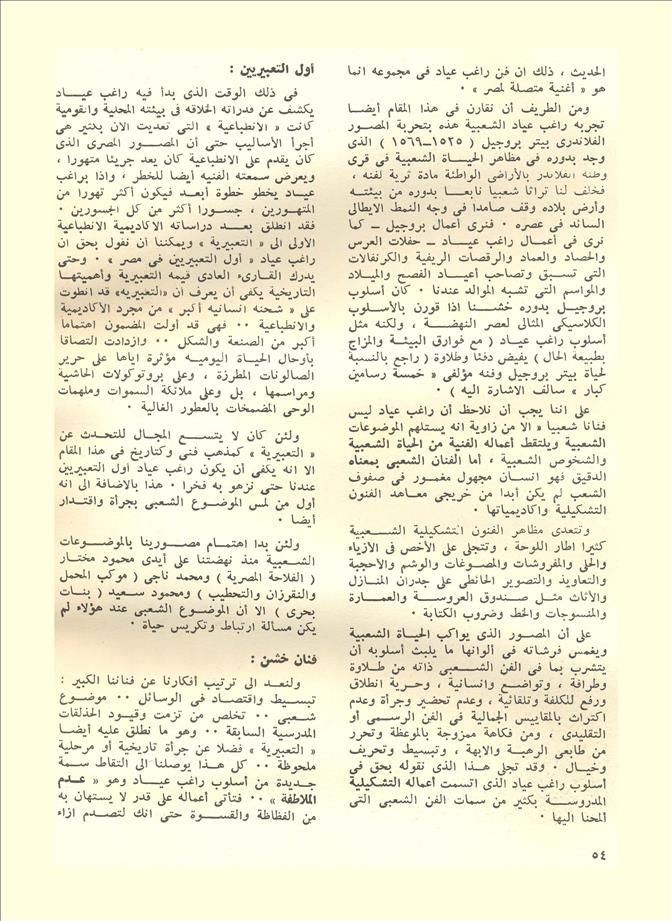 الحديث ، ذلك ان فن راغب عياد فى مجموعه انما
هو « أغنية متصلة لمصر » ٠
ومن الطريف أن نقارن فى هذا المقام أيضا
تجربه راغب عياد الشعبية هذه بتجربة المصور
الفلاندرى بيتر بروجيل ( ١٥٢٥ – ١٥٦٩ ) الذى
وجد بدوره فى مظاهر الحياة الشعبية فى قرى
وطنه الفلاندر بالأراضى الواطئة مادة ثرية لفنه ،
فخلف لنا تراثا شعبيا نابعا بدوره من بيئته
وأرض بلاده وقف صامدا فى وجه النمط الايطالى
السائد فى عصره ٠ فنرى أعمال بروجيل – كما
نرى فى أعمال راغب عياد – حفلات العرس
والحصاد والعماد والرقصات الريفية والكرنفالات
التى تسبق وتصاحب أعياد الفصح والميلاد
والمواسم التى تشبه الموالد عندنا ٠ كان أسلوب
بروجيل بدوره خشنا اذا قورن بالأسلوب
الكلاسيكى المثالى لعصر النهضة ، ولكنه مثل
أسلوب راغب عياد ( مع فوارق البيئة والمزاج
بطبيعة الحال ) يفيض دفئا وطلاوة ( راجع بالنسبة
لحياة بيتر بروجيل وفنه مؤلفى « خمسة رسامين
كبار » سالف الاشارة اليه ) ٠
على اننا يجب أن نلاحظ أن راغب عياد ليس
فنانا شعبيا « الا من زاوية انه يستلهم الموضوعات
الشعبية ويلتقط أعماله الفنية من الحياة الشعبية
والشخوص الشعبية ، أما الفنان الشعبى بمعناه
الدقيق فهو انسان مجهول مغمور فى صفوف
الشعب لم يكن أبدا من خريجى معاهد الفنون
التشكيلية واكاديمياتها ٠
وتتعدى مظاهر الفنون التشكيلية الشعبية
كثيرا اطار اللوحة ، وتتجلى على الأخص فى الأزياء
والحلى والمفروشات والمصوغات والوشم والأحجبة
والتعاويذ والتصوير الحائطى على جدران المنازل
والأثاث مثل صندوق العروسة والعمارة
والمنسوجات والخط وضروب الكتابة ٠
على أن المصور الذى يواكب الحياة الشعبية
ويغمس فرشاته فى ألوانها ما يلبث أسلوبه أن
يتشرب بما فى الفن الشعبى ذاته من طلاوة
وطرافة ، وتواضع وانسانية ، وحرية انطلاق
ورفع للكلفة وتلقائية ، وعدم تحضير وجرأة وعدم
اكتراث بالمقاييس الجمالية فى الفن الرسمى أو
التقليدى ، ومن فكاهة ممزوجة بالموعظة وتحرر
من طابعى الرهبة والابهة ، وتبسيط وتحريف
وخيال ٠ وقد تجلى هذا الذى نقوله بحق فى
أسلوب راغب عياد الذى اتسمت أعماله التشكيلية
المدروسة بكثير من سمات الفن الشعبى التى
ألمحنا اليها ٠
أول التعبيريين :
فى ذلك الوقت الذى بدأ فيه راغب عياد
يكشف عن قدراته الخلاقه فى بيئته المحلية والقومية
كانت « الانطباعية » التى تعديت الان بكثير هى
أجرأ الأساليب حتى أن المصور المصرى الذى
كان يقدم على الانطباعية كان يعد جريئا متهورا ،
ويعرض سمعته الفنيه أيضا للخطر ، واذا براغب
عياد يخطو خطوة أبعد فيكون أكثر تهورا من
المتهورين ، جسورا أكثر من كل الجسورين ٠
فقد انطلق بعد دراساته الاكاديمية الانطباعية
الاولى الى « التعبيرية » ويمكننا أن نقول بحق ان
راغب عياد « أول التعبيريين فى مصر » ٠ وحتى
يدرك القارىء العادى قيمه التعبيرية وأهميتها
التاريخية يكفى أن يعرف أن «التعبيريه» قد انطوت
على « شحنه انسانيه أكبر » من مجرد الأكاديمية
والانطباعية ٠٠ فهى قد أولت المضمون اهتماما
أكبر من الصنعة والشكل ٠٠ وازدادت التصاقا
بأوحال الحياة اليوميه مؤثرة اياها على حرير
الصالونات المطرزة ، وعلى بروتوكولات الحاشية
ومراسمها ، بل وعلى ملائكة السموات وملهمات
الوحى المضمخات بالعطور الغالية ٠
ولئن كان لا يتسع المجال للتحدث عن
« التعبيرية » كمذهب فنى وكتاريخ فى هذا المقام
الا انه يكفى أن يكون راغب عياد أول التعبيريين
عندنا حتى نزهو به فخرا ٠ هذا بالاضافة الى انه
أول من لمس الموضوع الشعبى بجرأة واقتدار
أيضا ٠
ولئن بدا اهتمام مصورينا بالموضوعات
الشعبية منذ نهضتنا على أيدى محمود مختار
( الفلاحة المصرية ) ومحمد ناجى ( موكب المحمل
والنقرزان والتحطيب ) ومحمود سعيد ( بنات
بحرى ) الا أن الموضوع الشعبى عند هؤلاء لم
يكن مسألة ارتباط وتكريس حياة ٠
فنان خشن :
ولنعد الى ترتيب أفكارنا عن فناننا الكبير :
تبسيط واقتصاد فى الوسائل ٠٠ موضوع
شعبى ٠٠ تخلص من تزمت وقيود الحذلقات
المدرسية السابقة ٠٠ وهو ما نطلق عليه أيضا
« التعبيرية » فضلا عن جرأة تاريخية أو مرحلية
ملحوظة ٠٠ كل هذا يوصلنا الى التقاط سمة
جديدة من أسلوب راغب عياد وهو « عدم
الملاطفة » ٠٠ فتأتى أعماله على قدر لا يستهان به
من الفظاظة والقسوة حتى انك لتصدم ازاء
٥٤